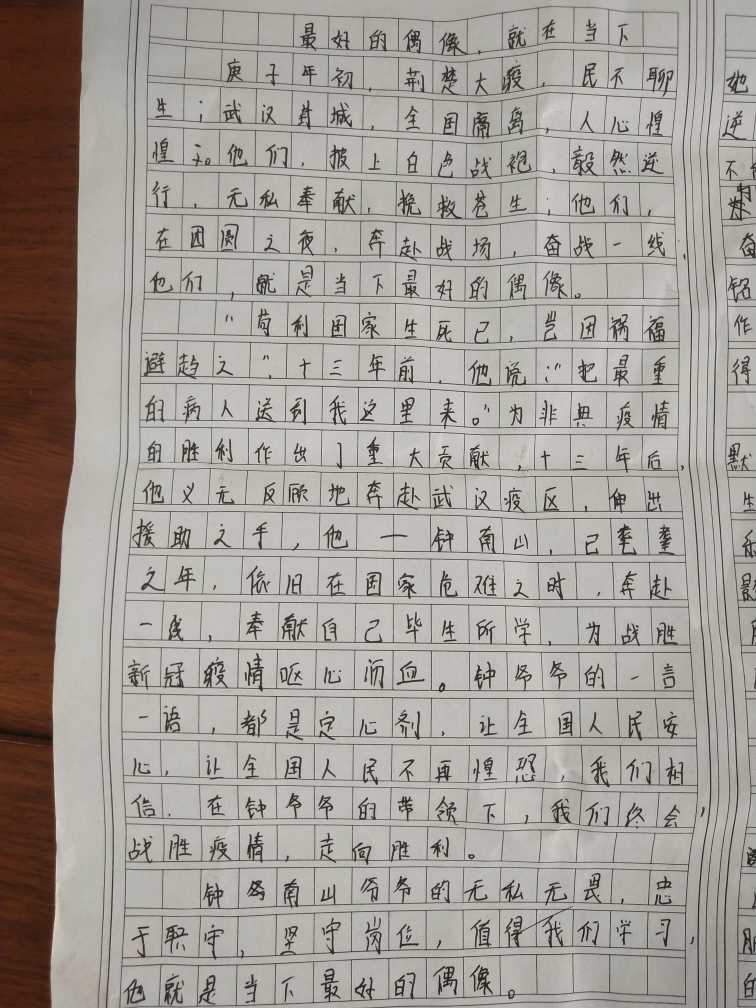 最好的偶像，就在当下
庚子年初，荆楚大疫，民不聊
生；武汉封城，全国隔离，人心惶
惶。他们，披上白色战袍，毅然逆
行，无私奉献，挽救苍生；他们，
在团圆之夜，奔赴战场，奋战一线，
他们，就是当下最好的偶像。
“苟利国家生死已，岂因祸福
避趋之”，十三年前，他说：“把最重
的病人送到我这里来。”为非典疫情
的胜利作出了重大贡献，十三年后，
他义无反顾地奔赴武汉疫区，伸出
援助之手，他一钟南山，已耄耋
之年，依旧在国家危难之时，奔赴
一线，奉献自己毕生所学，为战胜
新冠疫情呕心沥血。钟爷爷的一言
一语，都是定心剂，让全国人民安
心，让全国人民不再惶恐，我们相
信，在钟爷爷的带领下，我们终会
战胜疫情，走向胜利。
钟爷南山爷爷的无私无畏，忠
于职守，坚守岗位，值得我们学习，
他就是当下最好的偶像。
她
逆
奋
铭
作
得
默
生